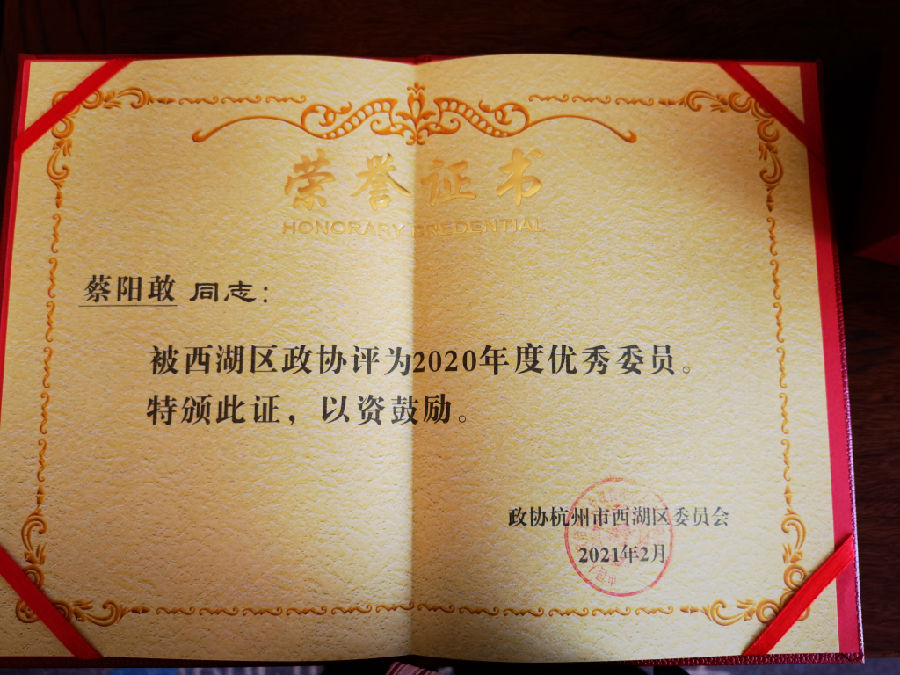 荣誉证书
HONORARY CREDENTIAL
蔡阳敢 同志：
被西湖区政协评为2020年度优秀委员。
特颁此证，以资鼓励。
政协杭州市西湖区委员会
2021年2月